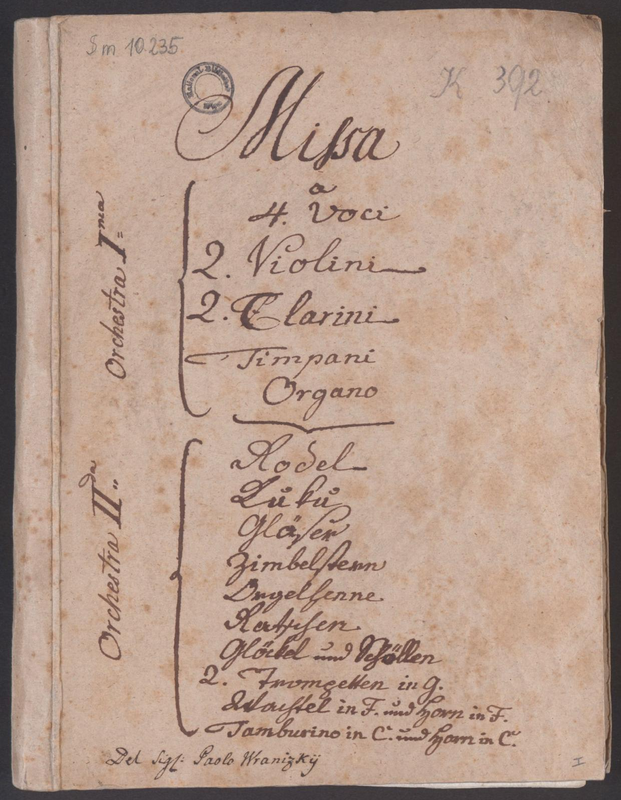 Sm 10.235.
K 392
Missa
a
4. Voci
2. Violini
2. Clarini
Timpani
Organo
Orchestra Ima
Rodel
Kuku
Gläser
Zimbelstern
Orgelhenne
Ratschen
Glöckel und Schöllen
2. Trompetten in G.
Wachtel in F. und Horn in F.
Tamburino in C. und Horn in C.
Orchestra IIda
Del Sigl: Paolo Wranizkÿ
I